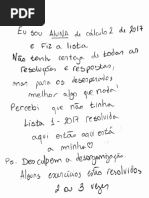 Eu sou ALUNA de cálculo 2 de 2017
e Fiz a lista.
Não tenho certeza de todas as
resoluções e respostas,
mas para os desesperados,
melhor algo que nada!
Percebi que não tinha
Lista 1 - 2017 resolvida
aqui então aqui está
a minha ♡
Ps: Desculpem a desorganização
Alguns exercícios estão resolvidos
2 ou 3 vezes